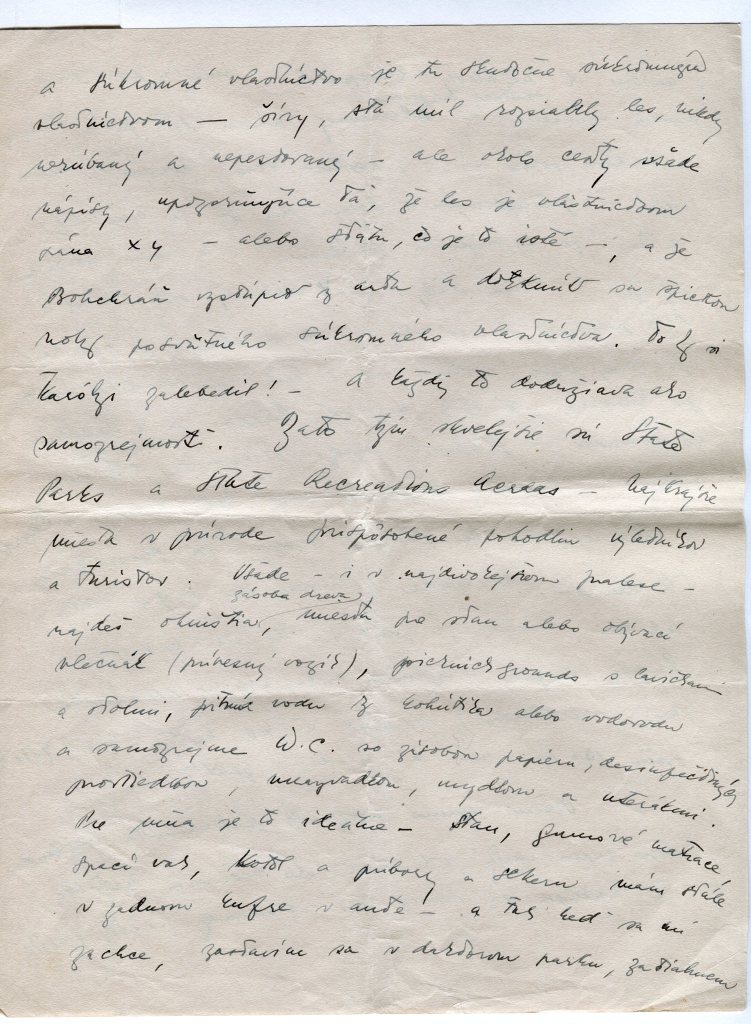 a súkromné vlastníctvo je tu skutočne súkromným
vlastníctvom — šíry, stá míľ rozsiahly les, nikdy
nerúbaný a nepestovaný — ale okolo cesty všade
nápisy, upozorňujúce ťa, že les je vlastníctvom
pána XY — alebo štátu, čo je to isté —, a že
Bohchráň vystúpiť z auta a dotknúť sa špičkou
nohy posvätného súkromného vlastníctva. To by si
Károlyi zalebedil! — A každý to dodržiava ako
samozrejmosť. Zato tým skvelejšie sú State
Parks a State Recreations Aereas — najkrajšie
miesta v prírode prispôsobené pohodliu výletníkov
a turistov. Všade — i v najdivokejšom pralese —
zásoba dreva,
najdeš ohništia, miesta pre stan alebo obývací
vlečňák (prívesný vozík), picnickgrounds s lavičkami
a stolmi, pitnú vodu z kohútika alebo vodovodu
a samozrejme W.C. so zásobou papieru, desinfekčných
prostriedkov, umývadlom, mydlom a uterákmi.
Pre mňa je to ideálne — stan, gumové matrace,
spací vak, kotol a príbory a sekeru mám stále
v zadnom kufre v aute — a tak keď sa mi
zachce, zastavím sa v ktoromkoľvek parku, zatiahnem